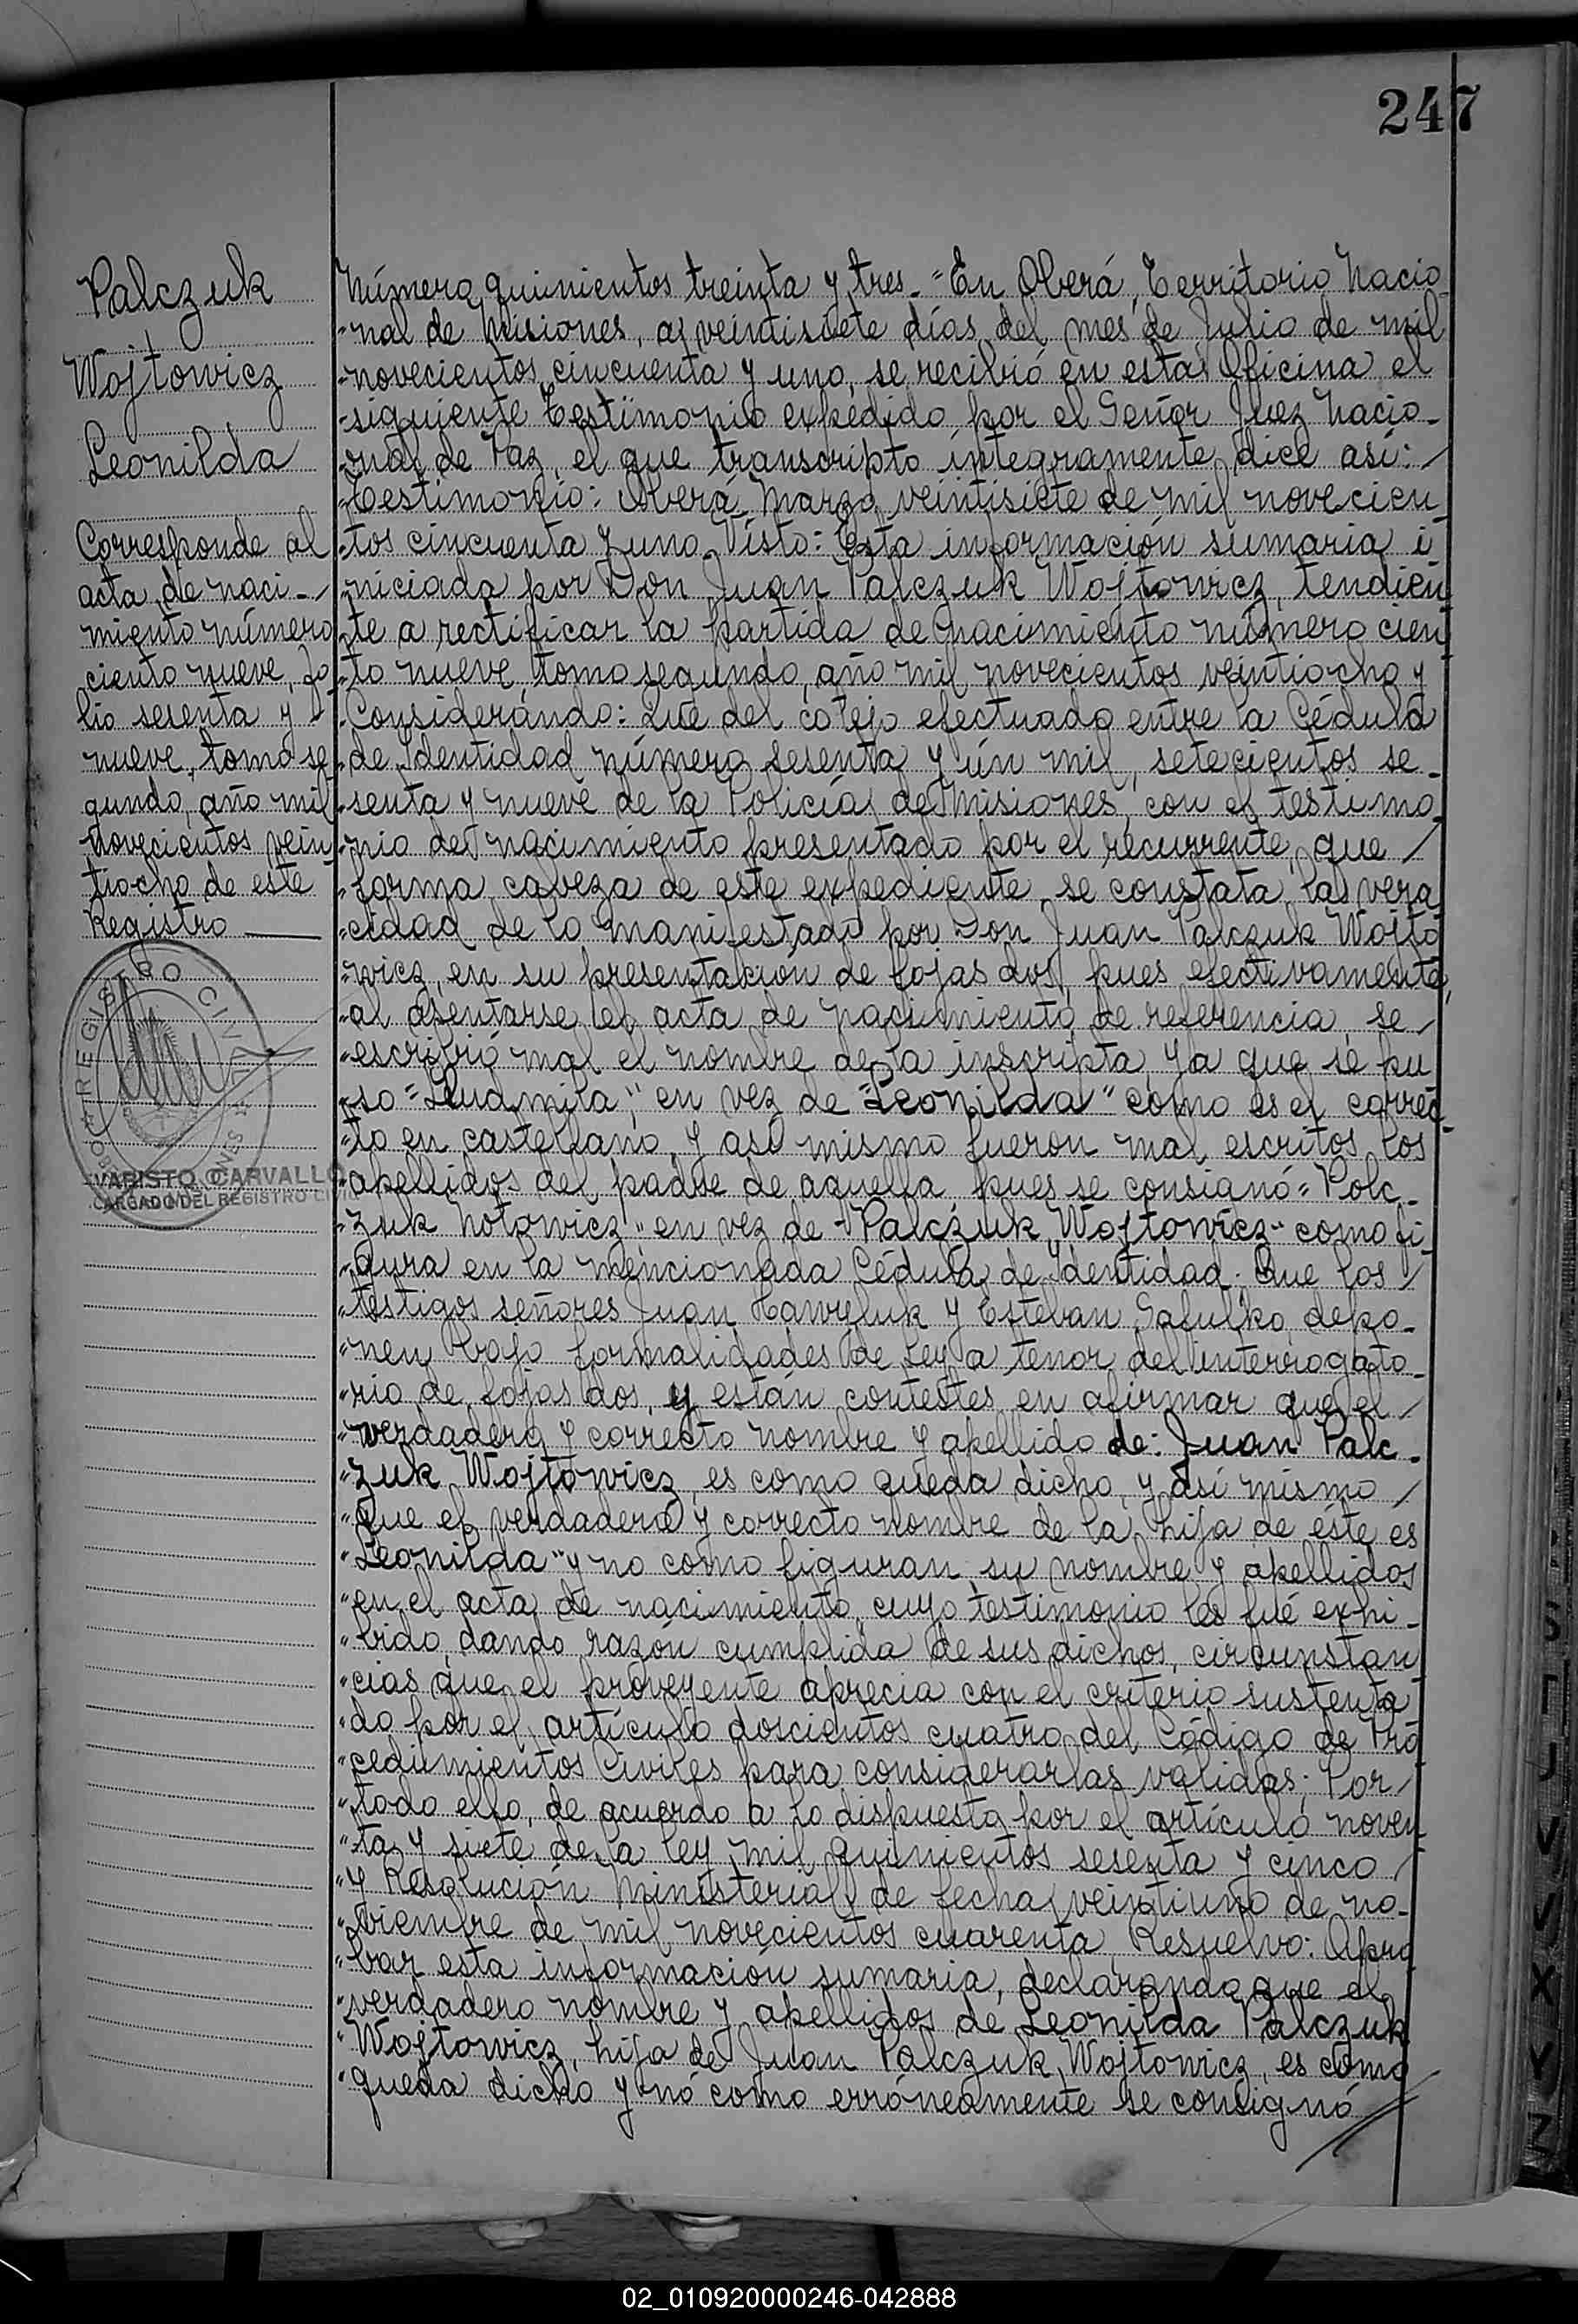 247
Palczuk
Wojtowicz
Leonilda
Corresponde al
acta de naci-/
miento número
ciento nueve, fo
lio sesenta y
nueve, tomo se
gundo, año mil
novecientos vein
tiocho de este
Registro
REGISTRO CIVIL
VARISTO CARVALLO
CARGADO DEL REGISTRO CIVIL
Número quinientos treinta y tres.="En Oberá, Territorio Nacio-
"nal de Misiones, a veintisiete días del mes de Julio de mil
"novecientos cincuenta y uno, se recibió en esta Oficina el
"siguiente Testimonio expedido por el Señor Juez Nacio-
"nal de Paz, el que transcripto íntegramente dice así:/
"Testimonio: Oberá, Marzo veintisiete de mil novecien
"tos cincuenta y uno. Visto: Esta información sumaria i
"niciada por Don Juan Palczuk Wojtowicz, tendien
"te a rectificar la partida de nacimiento número cien
"to nueve, tomo segundo, año mil novecientos veintiocho y
"Considerando: Que del cotejo efectuado entre la Cédula
"de Identidad número sesenta y un mil, setecientos se-
"senta y nueve de la Policía de Misiones, con el testimo
"nio de nacimiento presentado por el recurrente, que /
"forma cabeza de este expediente, se constata la vera
"cidad de lo manifestado por Don Juan Palczuk Wojto
"wicz, en su presentación de fojas dos, pues efectivamente,
"al asentarse el acta de nacimiento de referencia, se/
"escribió mal el nombre de la inscripta, ya que se pu
"so "Ludmila", en vez de "Leonilda" como es el correc-
"to en castellano, y así mismo fueron mal escritos los
"apellidos del padre de aquella, pues se consignó "Polc-
"zuk Notowicz" en vez de "Palczuk Wojtowicz" como fi-
"gura en la mencionada Cédula de Identidad. Que los/
"testigos señores Juan Hawryluk y Esteban Safulko, depo-
"nen bajo formalidades de ley a tenor del interrogato-
"rio de fojas dos, y están contestes en afirmar que el/
"verdadero y correcto nombre y apellido de: Juan Palc-
"zuk Wojtowicz, es como queda dicho, y así mismo /
"que el verdadero y correcto nombre de la hija de éste es
"Leonilda" y no como figuran su nombre y apellidos
"en el acta de nacimiento, cuyo testimonio les fué exhi-
"bido, dando razón cumplida de sus dichos, circunstan
"cias que el proveyente aprecia con el criterio sustenta
"do por el artículo doscientos cuatro del Código de Pro
"cedimientos Civiles para considerarlas válidas; Por/
"todo ello, de acuerdo a lo dispuesto por el artículo noven
"ta y siete de la ley mil quinientos sesenta y cinco /
"y Resolución Ministerial de fecha veintiuno de no-
"viembre de mil novecientos cuarenta, Resuelvo: Apro
"bar esta información sumaria, declarando que el
"verdadero nombre y apellidos de Leonilda Palczuk
"Wojtowicz, hija de Juan Palczuk Wojtowicz, es como
"queda dicho y nó como erróneamente se consignó
S
T
J
V
V
X
Y
Z
02_010920000246-042888